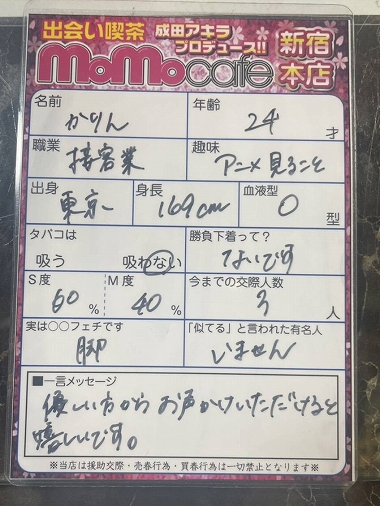 出会い喫茶 成田アキラ プロデュース!! 新宿本店
MoMocafe
名前 かりん 年齢 24 才
職業 接客業 趣味 アニメ見ること
出身 東京 身長 169cm 血液型 O 型
タバコは 吸う 吸わない 勝負下着って? ないです
S度 60 % M度 40 % 今までの交際人数 3 人
実は○○フェチです 脚 「似てる」と言われた有名人 いません
■一言メッセージ
優しい方から お声かけいただけると
嬉しいです。
※当店は援助交際・売春行為・買春行為は一切禁止となります※